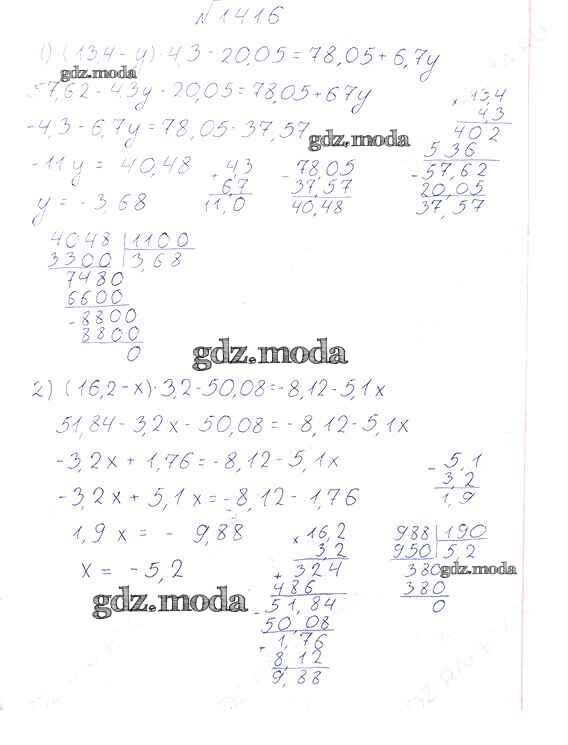 №1416
1) (13,4 - y) · 4,3 - 20,05 = 78,05 + 6,7y
gdz.moda
57,62 - 4,3y - 20,05 = 78,05 + 67y
× 13,4
4 3
402
536
57,62
- 20,05
37,57
-4,3 - 6,7y = 78,05 - 37,57
gdz.moda
-11y = 40,48
y = -3,68
+ 4,3
6,7
11,0
- 78,05
37,57
40,48
4048 | 1100
3300 | 3,68
7480
6600
- 8800
8800
0
gdz.moda
2) (16,2 - x) · 3,2 - 50,08 = -8,12 - 5,1x
51,84 - 3,2x - 50,08 = -8,12 - 5,1x
-3,2x + 1,76 = -8,12 - 5,1x
-3,2x + 5,1x = -8,12 - 1,76
- 5,1
3,2
1,9
1,9x = - 9,88
x = -5,2
× 16,2
3,2
+ 324
486
- 51,84
50,08
+ 1,76
8,12
9,88
988 | 190
950 | 5,2
380
380
0
gdz.moda
gdz.moda